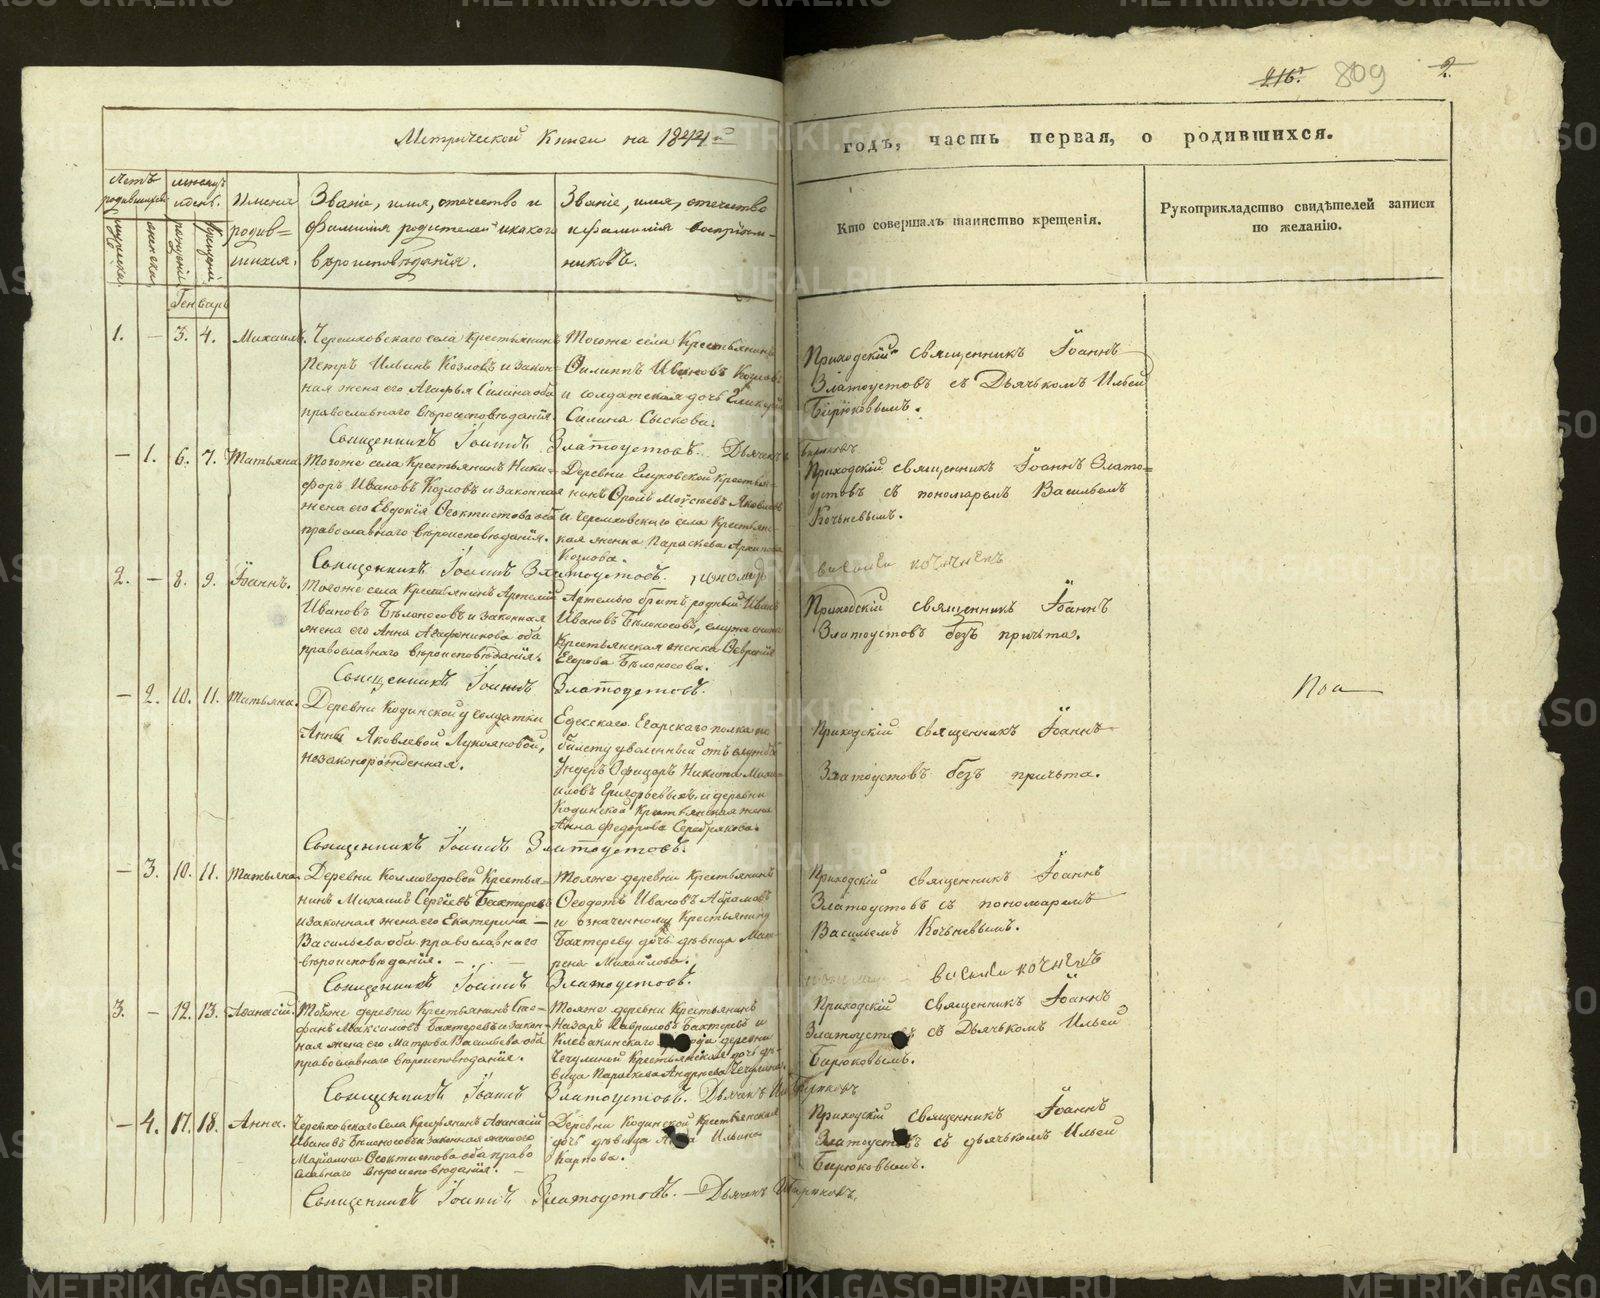 216.
809
2.
Метрической Книги на 1844й
годъ, часть первая, о родившихся.
Счетъ родившихся.
мужеска.
женска.
Мѣсяцъ и день.
рожденія.
крещенія.
Имена родив=
шихся.
Званіе, имя, отечество и
фамилія родителей и какого
вѣроисповѣданія.
Званіе, имя, отечество
и фамилія воспріем-
никовъ.
Кто совершалъ таинство крещенія.
Рукоприкладство свидѣтелей записи
по желанію.
Генварь
1. — 3. 4. Михаилъ.
Черемховскаго села Крестьянинъ
Петръ Ильинъ Козловъ и закон-
ная жена его Агафья Силина оба
православнаго вѣроисповѣданія.
Тогоже села Крестьянинъ
Филиппъ Ивановъ Козловъ
и солдатская дочь
Силина Сыскова.
Приходскій священникъ Іоаннъ
Златоустовъ съ Дьячкомъ Ильей
Бирюковымъ.
Священникъ Іоаннъ Златоустовъ. Дьячекъ Бирюковъ
— 1. 6. 7. Татьяна
Тогоже села Крестьянинъ Ники-
форъ Ивановъ Козловъ и законная
жена его Евдокія Феоктистова оба
православнаго вѣроисповѣданія.
Деревни Крестья-
нинъ Фролъ Моѵсѣевъ Яковлевъ
и Черемховскаго села Крестьянс-
кая женка Параскева Архипова
Козлова.
Приходскій священникъ Іоаннъ Злато=
устовъ съ пономаремъ Васильемъ
Кочневымъ.
Священникъ Іоаннъ Златоустовъ. пономарь василеи кочневъ
2. — 8. 9. Іоаннъ.
Тогоже села Крестьянинъ Артемій
Ивановъ Бѣлоносовъ и законная
жена его Анна Агафоникова оба
православнаго вѣроисповѣданія.
Артемью братъ родный Иванъ
Ивановъ Бѣлоносовъ,
Крестьянская женка Февронія
Егорова Бѣлоносова.
Приходскій священникъ Іоаннъ
Златоустовъ безъ причта.
Священникъ Іоаннъ Златоустовъ.
— 2. 10. 11. Татьяна.
Деревни Кодинской у солдатки
Анны Яковлевой Лукояновой,
незаконорожденная.
Едесскаго Егарскаго полка по
билету уволенный отъ службы
Ундеръ Офицеръ Никита Миха-
иловъ Григорьевыхъ и деревни
Кодинской Крестьянская жена
Анна Федорова Серебрякова.
Приходскій священникъ Іоаннъ
Златоустовъ безъ причта.
Священникъ Іоаннъ Златоустовъ.
— 3. 10. 11. Татьяна.
Деревни Колмогоровой Крестья-
нинъ Михаилъ Сергѣевъ Бахтеревъ
и законная жена его Екатерина —
Васильева оба православнаго
вѣроисповѣданія.
Тояже деревни Крестьянинъ
Феодотъ Ивановъ Абрамовъ
и означенному Крестьянину
Бахтереву дочь дѣвица Мат-
рена Михайлова.
Приходскій священникъ Іоаннъ
Златоустовъ съ пономаремъ
Васильемъ Кочневымъ.
Священникъ Іоаннъ Златоустовъ. пономарь василеи кочневъ
3. — 12. 13. Аѳанасій.
Тойже деревни Крестьянинъ Сте-
фанъ Максимовъ Бахтеревъ и закон-
ная жена его Матрона Васильева оба
православнаго вѣроисповѣданія.
Тояже деревни Крестьянинъ
Назаръ Гавриловъ Бахтеревъ и
Клевакинскаго деревни
Чечулиной Крестьянская дочь дѣ-
вица Параскева Андреева Чечулина.
Приходскій священникъ Іоаннъ
Златоустовъ съ Дьячкомъ Ильей
Бирюковымъ.
Священникъ Іоаннъ Златоустовъ. Дьячекъ И. Бирюковъ
— 4. 17. 18. Анна.
Черемховскаго Села Крестьянинъ Аѳанасій
Ивановъ Бѣлоносовъ и законная жена его
Маріамна Феоктистова оба право
славнаго вѣроисповѣданія.
Деревни Кодинской Крестьянская
дочь дѣвица Анна Ильина
Карпова.
Приходскій священникъ Іоаннъ
Златоустовъ съ дьячкомъ Ильей
Бирюковымъ.
Священникъ Іоаннъ Златоустовъ. — Дьячекъ И Бирюковъ.
METRIKI.GASO-URAL.RU